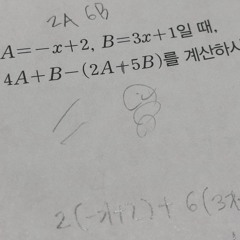 2A 6B
A=-x+2, B=3x+1일 때,
4A+B-(2A+5B)를 계산하시
=
2(-x+2)+6(3x